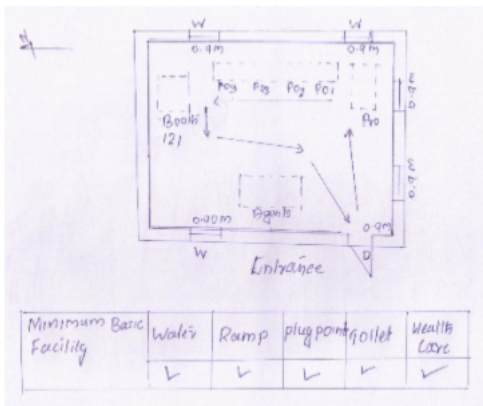 W W
0.9m 0.9m
PO3 PO3 PO2 PO1
Booth
121
Pro
0.9m
0.9m
Agents
0.90m 0.9m
W D
Entrance
Minimum Basic Facility
Water Ramp plug point Toilet Health Care
✓ ✓ ✓ ✓ ✓